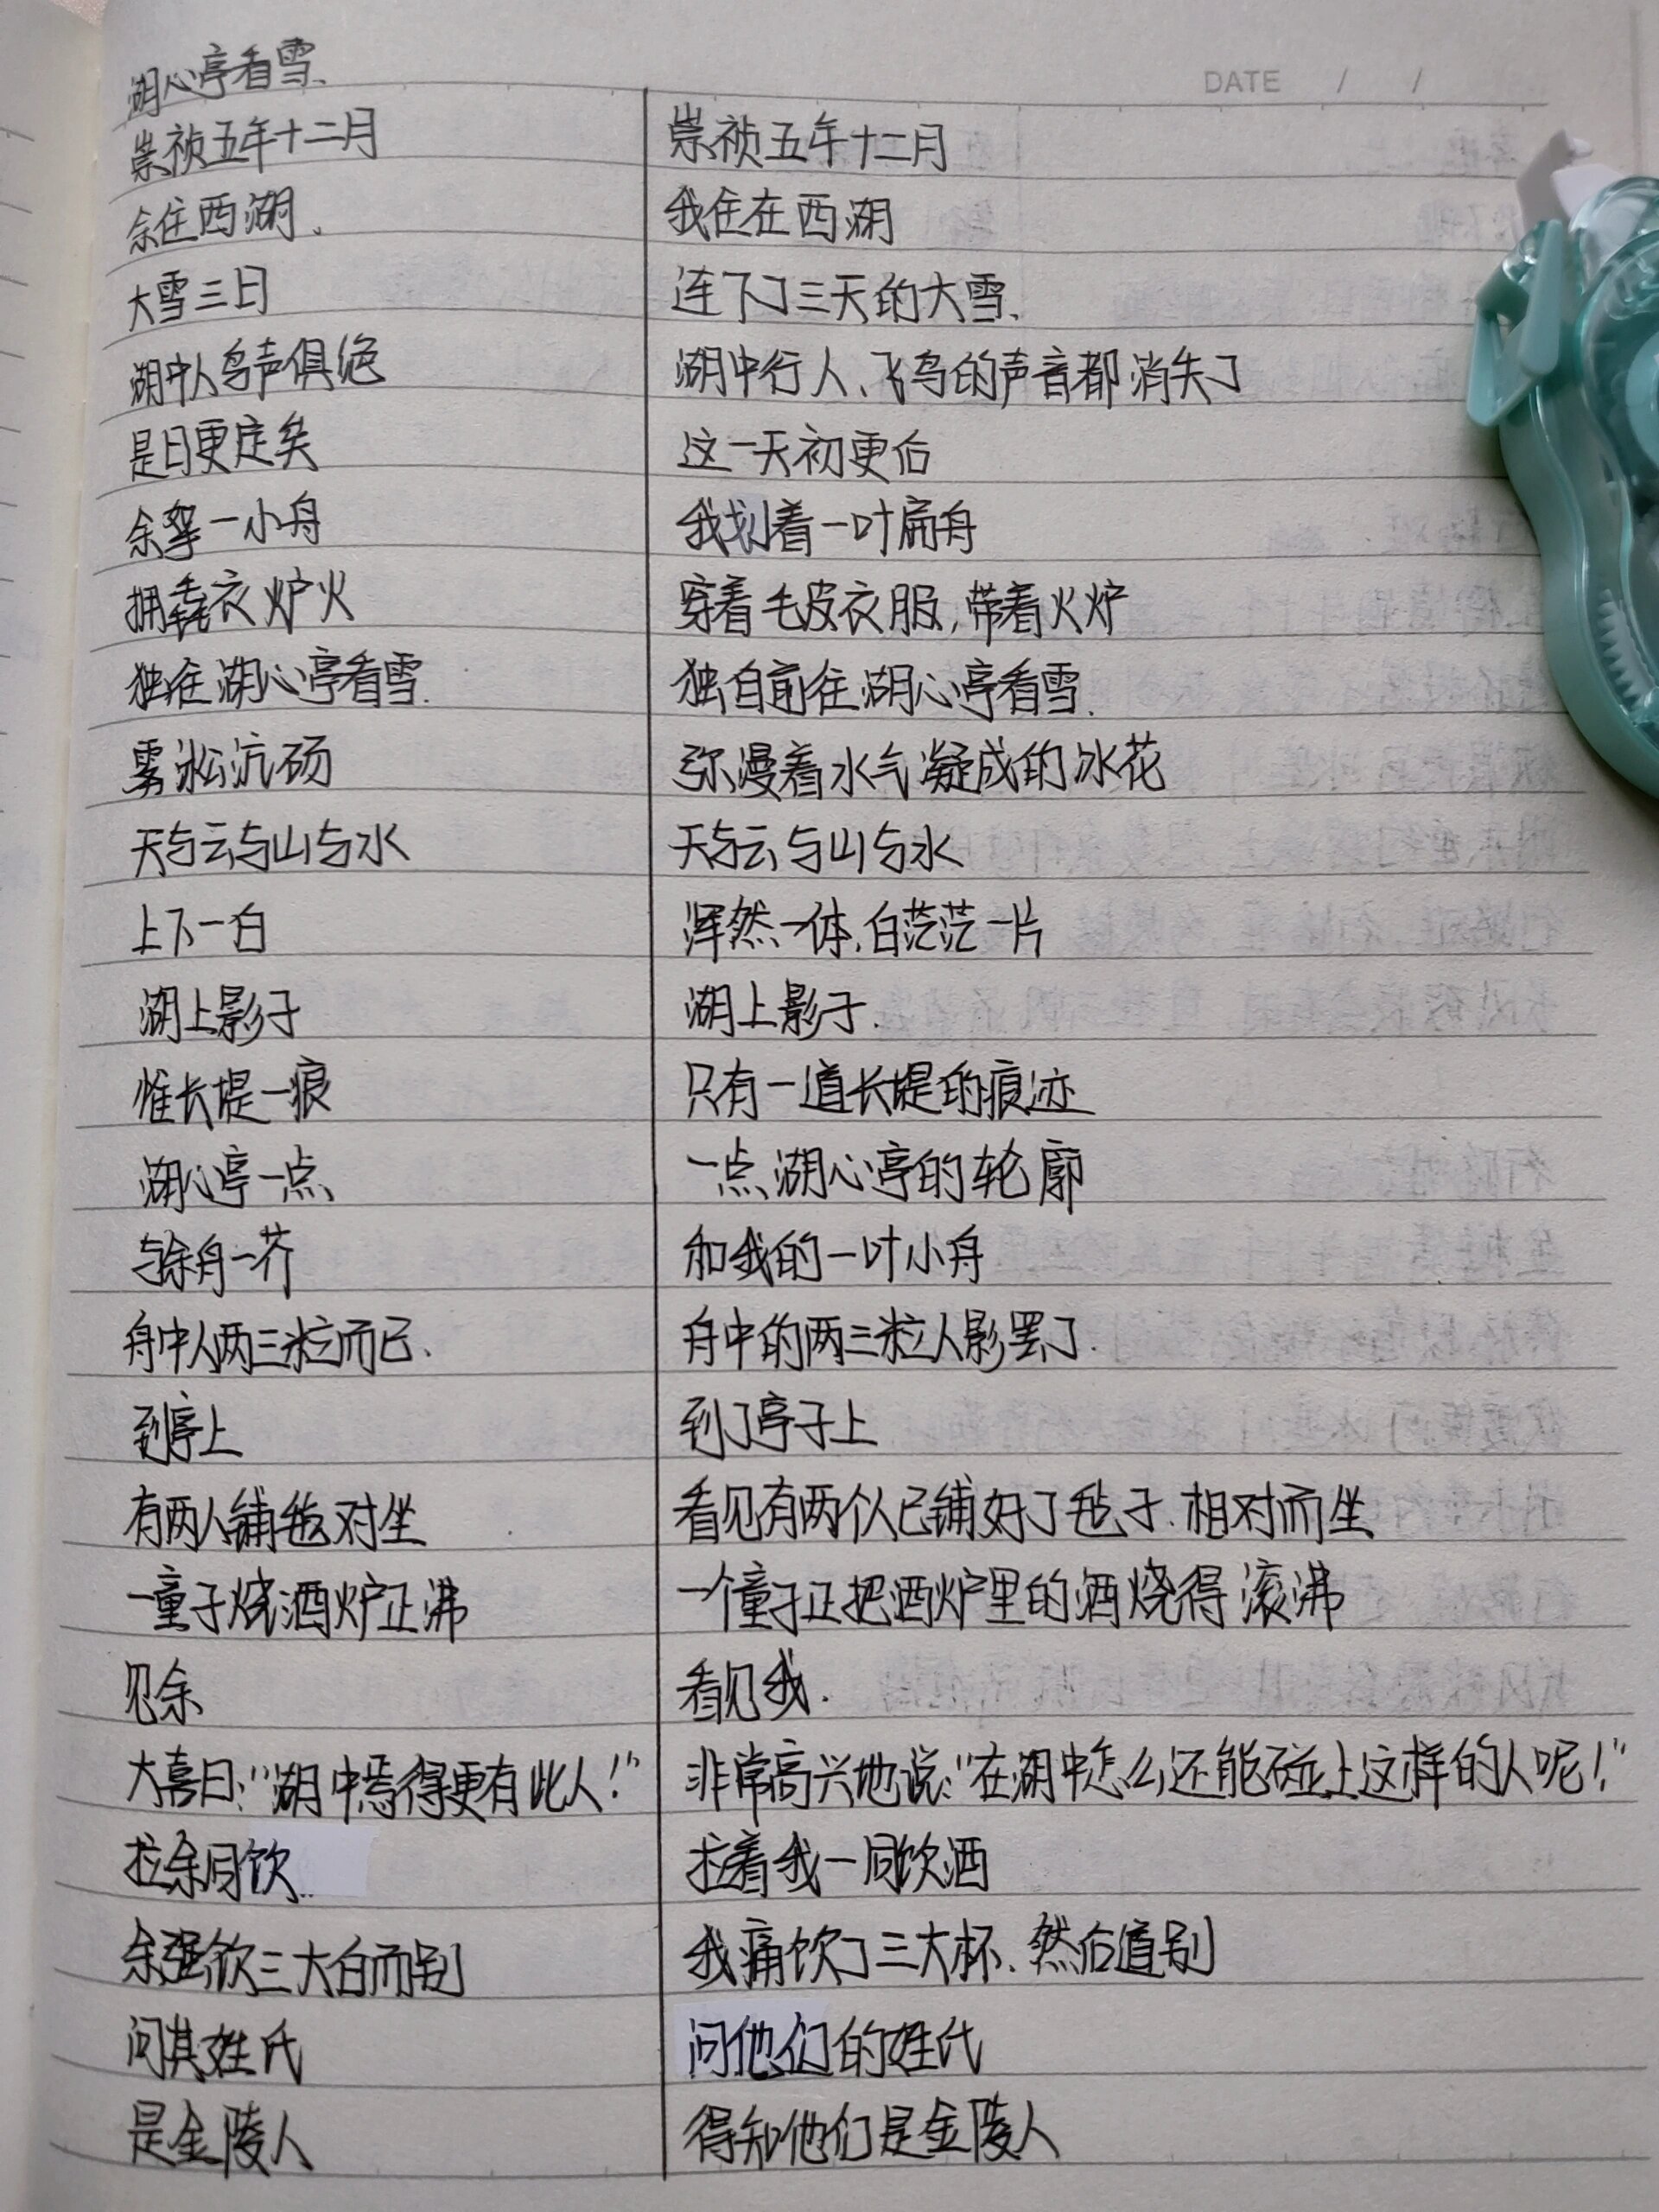 湖心亭看雪、
DATE / /
崇祯五年十二月 崇祯五年十二月
余住西湖、 我住在西湖
大雪三日 连下了三天的大雪、
湖中人鸟声俱绝 湖中行人、飞鸟的声音都消失了
是日更定矣 这一天初更后
余拏一小舟 我划着一叶扁舟
拥毳衣炉火 穿着毛皮衣服,带着火炉
独往湖心亭看雪. 独自前往湖心亭看雪.
雾凇沆砀 弥漫着水气凝成的冰花
天与云与山与水 天与云与山与水
上下一白 浑然一体,白茫茫一片
湖上影子 湖上影子.
惟长堤一痕 只有一道长堤的痕迹
湖心亭一点、 一点湖心亭的轮廓
与余舟一芥 和我的一叶小舟
舟中人两三粒而已、 舟中的两三粒人影罢了.
到亭上 到了亭子上
有两人铺毡对坐 看见有两个人已铺好了毡子.相对而坐
一童子烧酒炉正沸 一个童子正把酒炉里的酒烧得滚沸
见余 看见我.
大喜曰:“湖中焉得更有此人!” 非常高兴地说:“在湖中怎么还能碰上这样的人呢!”
拉余同饮.. 拉着我一同饮酒
余强饮三大白而别 我痛饮了三大杯、然后道别
问其姓氏 问他们的姓氏
是金陵人 得知他们是金陵人